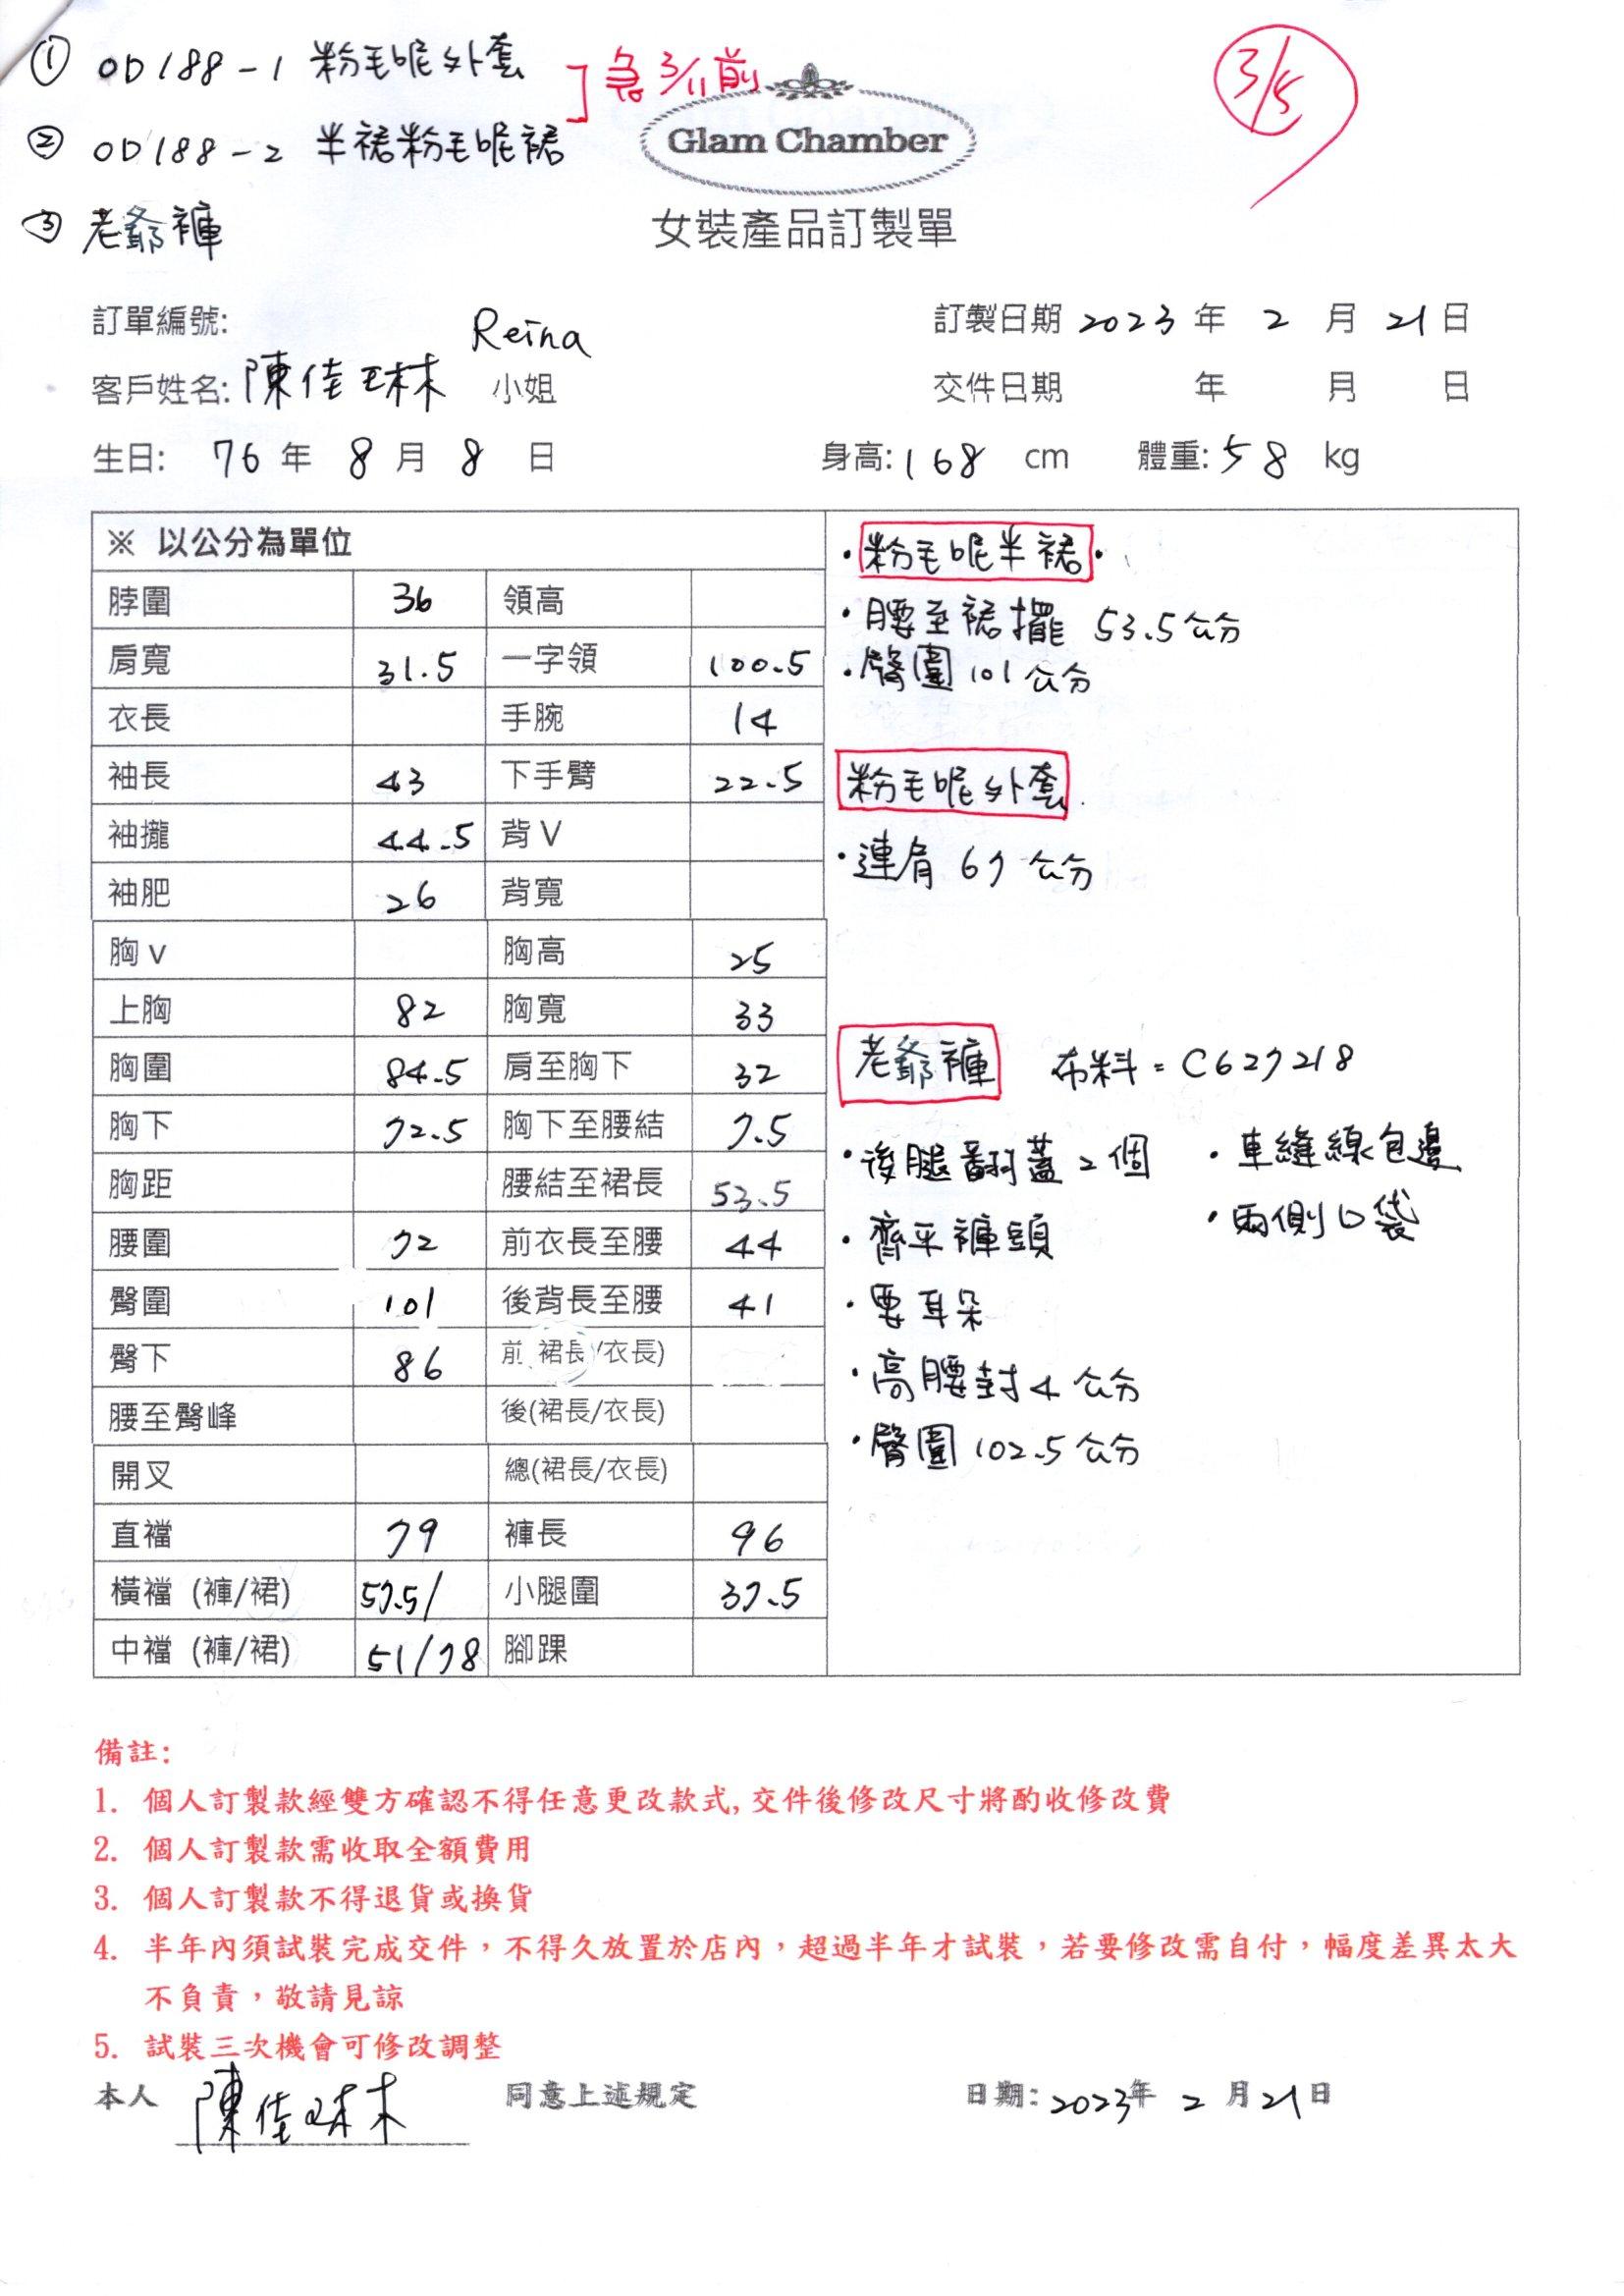 ① OD188-1 粉毛呢外套
② OD188-2 半裙粉毛呢裙
急 3/11前
3/5
③ 老爺褲
Glam Chamber
女裝產品訂製單
訂單編號:
訂製日期 2023 年 2 月 21 日
Reina
客戶姓名: 陳佳琳 小姐
交件日期 年 月 日
生日: 76 年 8 月 8 日
身高: 168 cm 體重: 58 kg
※ 以公分為單位
脖圍 36 領高
肩寬 31.5 一字領 100.5
衣長 手腕 14
袖長 43 下手臂 22.5
袖攏 44.5 背V
袖肥 26 背寬
胸v 胸高 25
上胸 82 胸寬 33
胸圍 84.5 肩至胸下 32
胸下 72.5 胸下至腰結 7.5
胸距 腰結至裙長 53.5
腰圍 72 前衣長至腰 44
臀圍 101 後背長至腰 41
臀下 86 前 裙長/衣長)
腰至臀峰 後(裙長/衣長)
開叉 總(裙長/衣長)
直襠 79 褲長 96
橫襠 (褲/裙) 57.5/ 小腿圍 37.5
中襠 (褲/裙) 51/78 腳踝
·粉毛呢半裙·
·腰至裙擺 53.5公分
·臀圍101公分
粉毛呢外套
·連肩 67 公分
老爺褲 布料=C627218
·後腿翻蓋2個 ·車縫線包邊
·齊平褲頭 ·兩側口袋
·要耳朵
·高腰封4公分
·臀圍102.5公分
備註:
1. 個人訂製款經雙方確認不得任意更改款式,交件後修改尺寸將酌收修改費
2. 個人訂製款需收取全額費用
3. 個人訂製款不得退貨或換貨
4. 半年內須試裝完成交件，不得久放置於店內，超過半年才試裝，若要修改需自付，幅度差異太大
不負責，敬請見諒
5. 試裝三次機會可修改調整
本人 陳佳琳 同意上述規定 日期: 2023年 2 月 21日